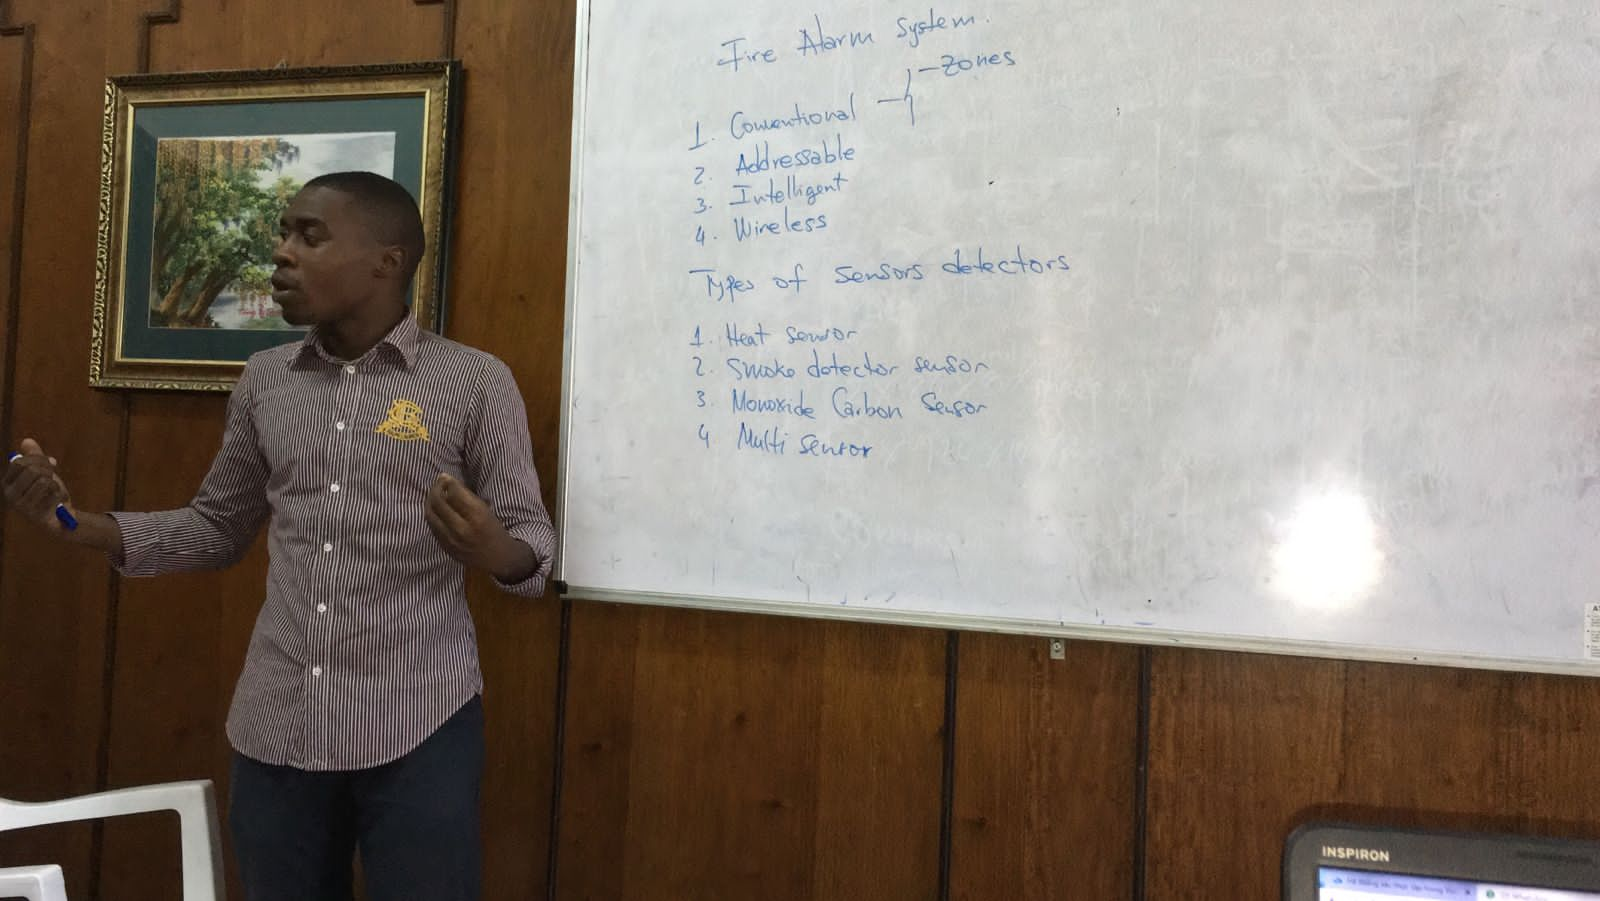 Fire Alarm System.
- Zones
1. Conventional
2. Addressable
3. Intelligent
4. Wireless
Types of sensors detectors
1. Heat sensor
2. Smoke detector sensor
3. Monoxide Carbon Sensor
4 Multi sensor
INSPIRON